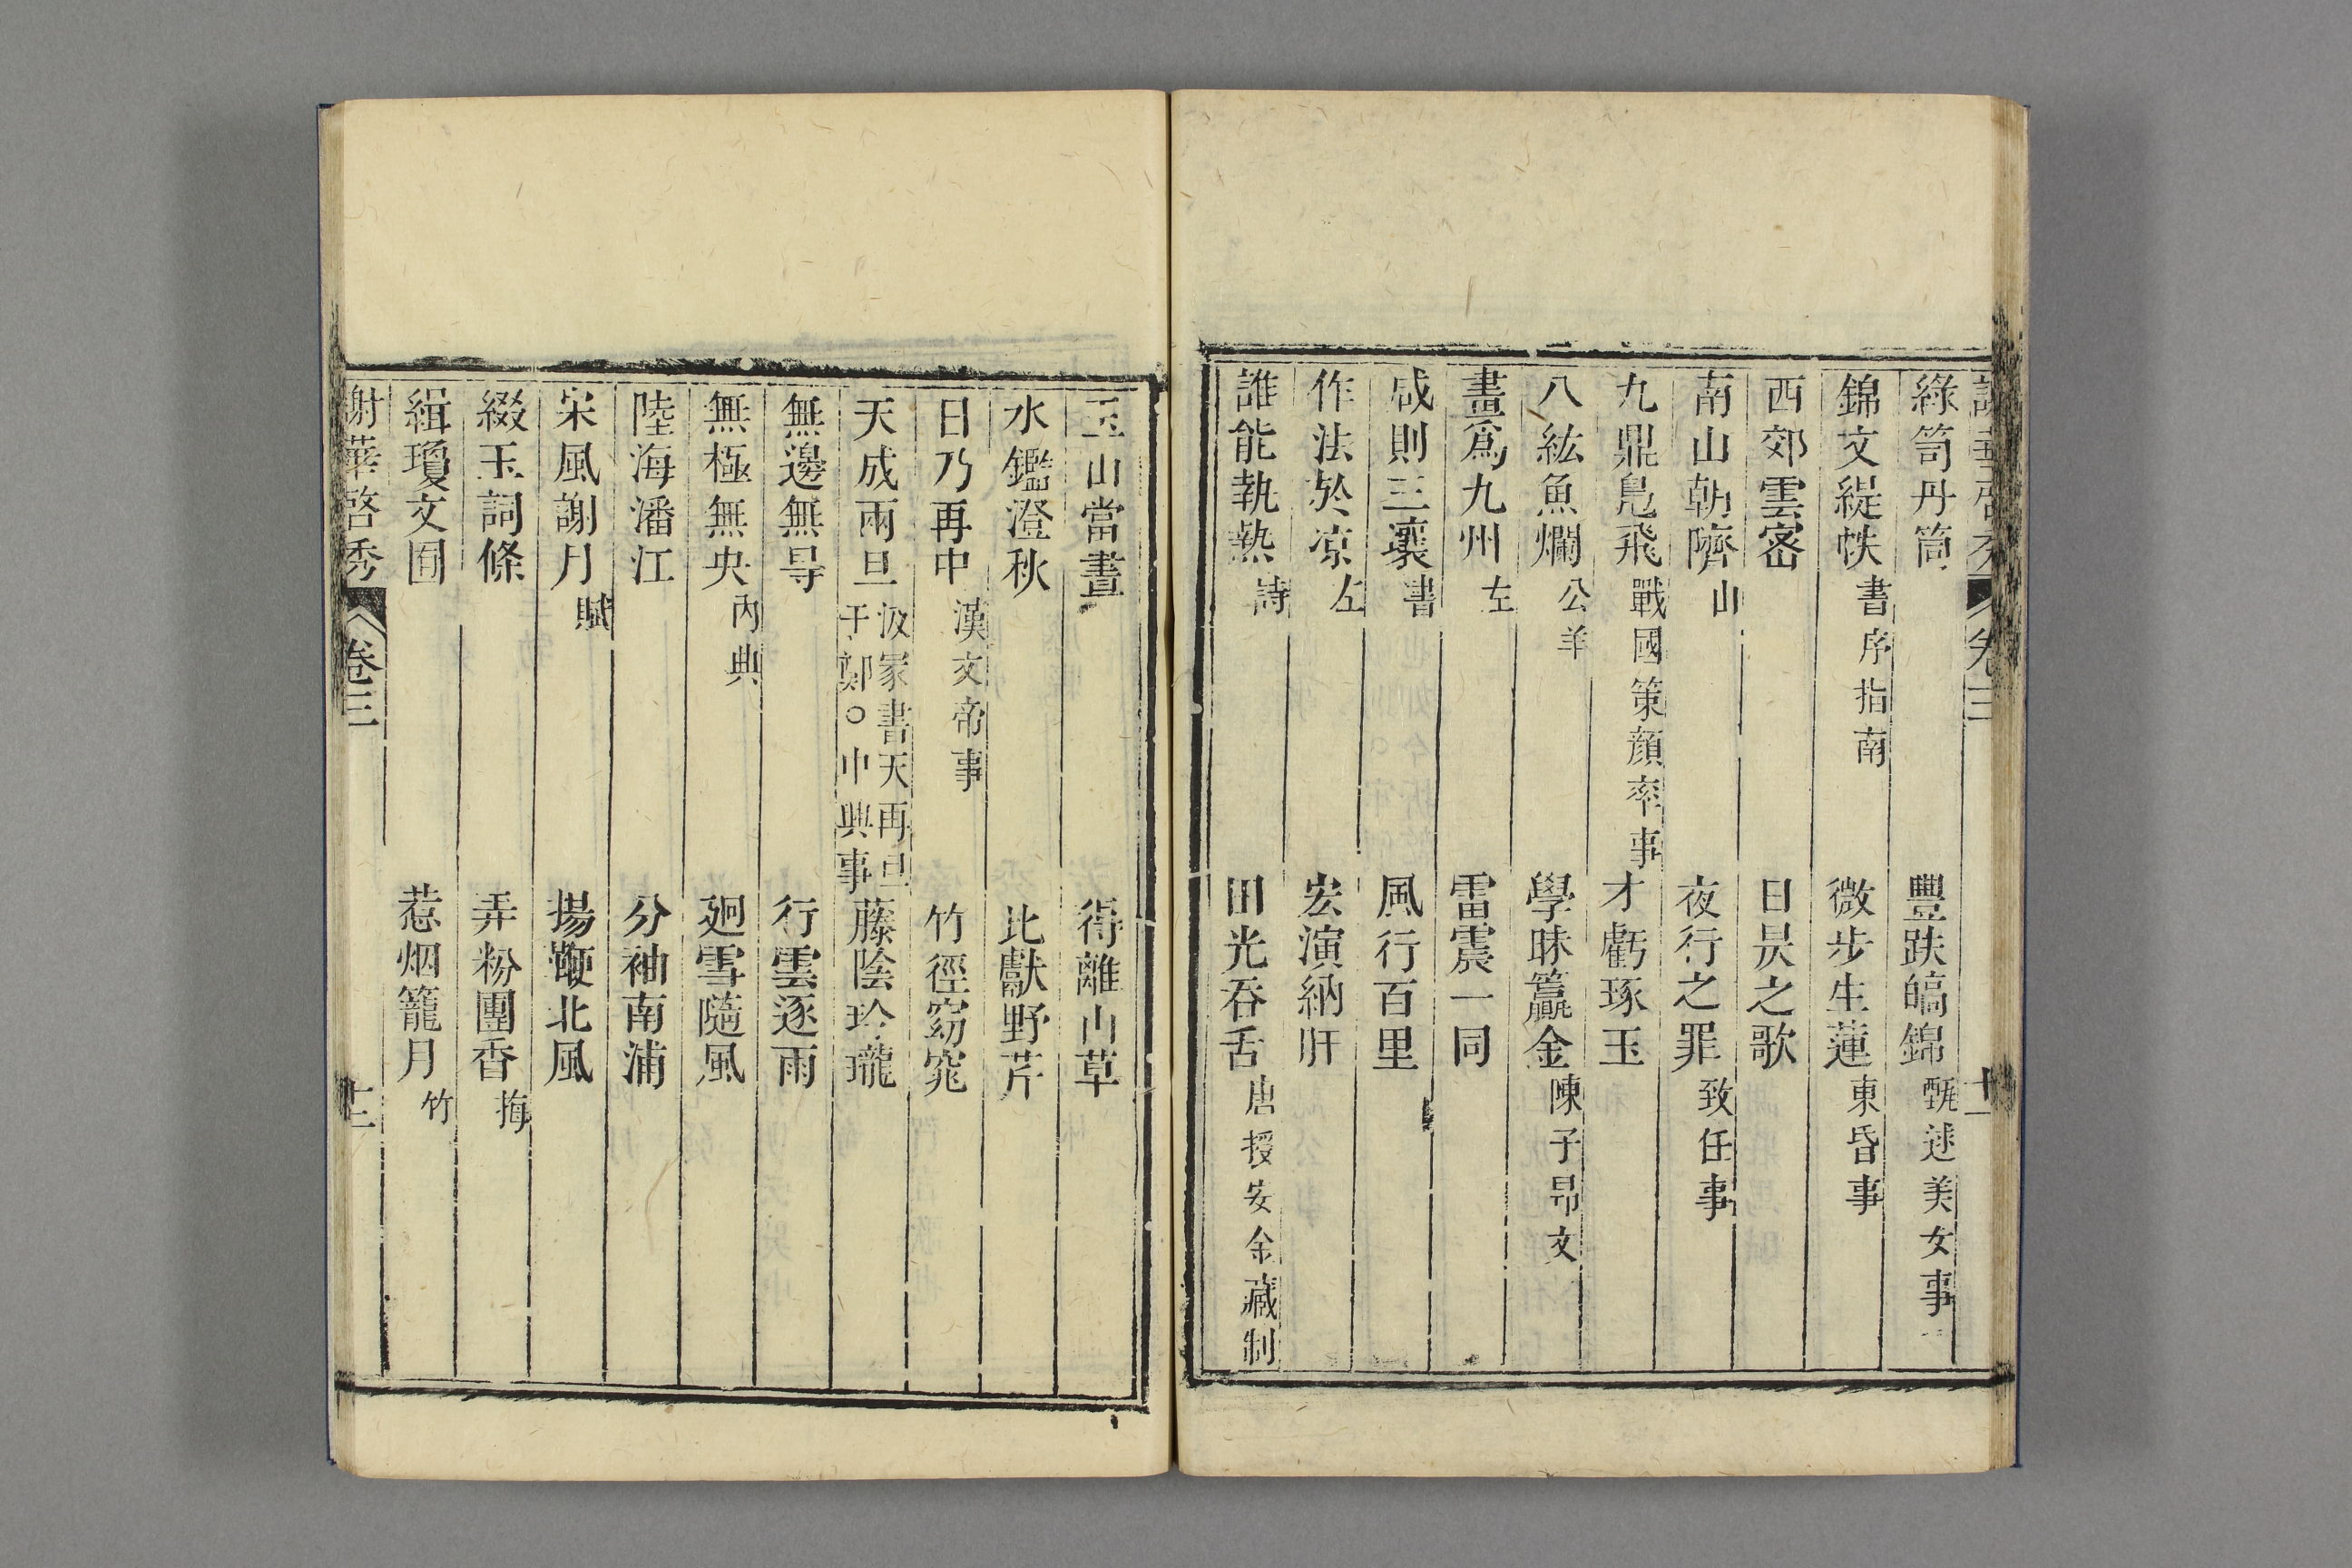 謝華啓秀 卷三 十一
綠笥丹筒 豐趺皜錦 甄述美女事
錦文緹帙 書序指南 微步生蓮 東昏事
西郊雲密 日昃之歌
南山朝隮 山 夜行之罪 致任事
九鼎鳧飛 戰國策顔率事 才虧琢玉
八紘魚爛 公羊 學昧籯金 陳子昂文
畫爲九州 左 雷震一同
咸則三壤 書 風行百里
作法於凉 左 宏演納肝
誰能執熱 詩 田光吞舌 唐授安金藏制
玉山當晝 得離山草
水鑑澄秋 比獻野芹
日乃再中 漢文帝事 竹徑窈窕
天成兩旦 汲冢書天再旦于鄭○中興事 藤陰玲瓏
無邊無㝵 行雲逐雨
無極無央 內典 廻雪隨風
陸海潘江 分袖南浦
宋風謝月 賦 揚鞭北風
綴玉詞條 弄粉團香 梅
緝瓊文囿 惹烟籠月 竹
謝華啓秀 卷三 十二